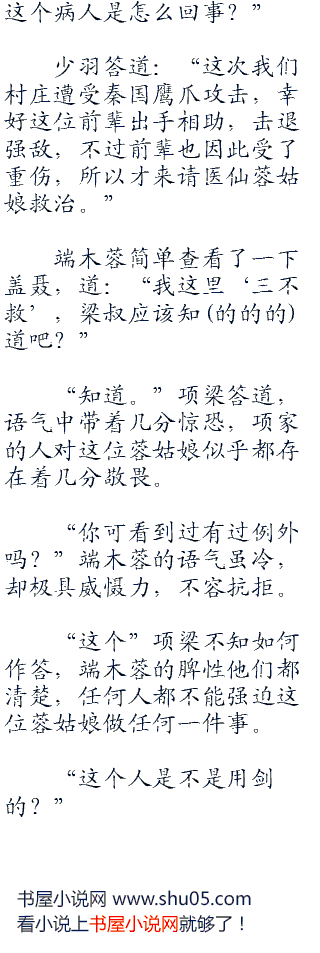 这个病人是怎么回事？”
少羽答道：“这次我们
村庄遭受秦国鹰爪攻击，幸
好这位前辈出手相助，击退
强敌，不过前辈也因此受了
重伤，所以才来请医仙蓉姑
娘救治。”
端木蓉简单查看了一下
盖聂，道：“我这里‘三不
救’，梁叔应该知(的的的)
道吧？”
“知道。”项梁答道，
语气中带着几分惊恐，项家
的人对这位蓉姑娘似乎都存
在着几分敬畏。
“你可看到过有过例外
吗？”端木蓉的语气虽冷，
却极具威慑力，不容抗拒。
“这个”项梁不知如何
作答，端木蓉的脾性他们都
清楚，任何人都不能强迫这
位蓉姑娘做任何一件事。
“这个人是不是用剑
的？”
书屋小说网 www.shu05.com
看小说上书屋小说网就够了！